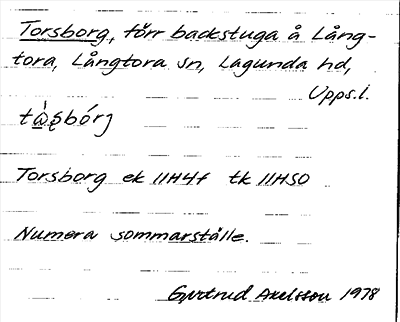 Torsborg, förr backstuga å Lång-
tora, Långtora sn, Lagunda hd,
Upps.l.
Torsborg ek 11H4f tk 11H50
Numera sommarställe.
Gertrud Axelsson 1978